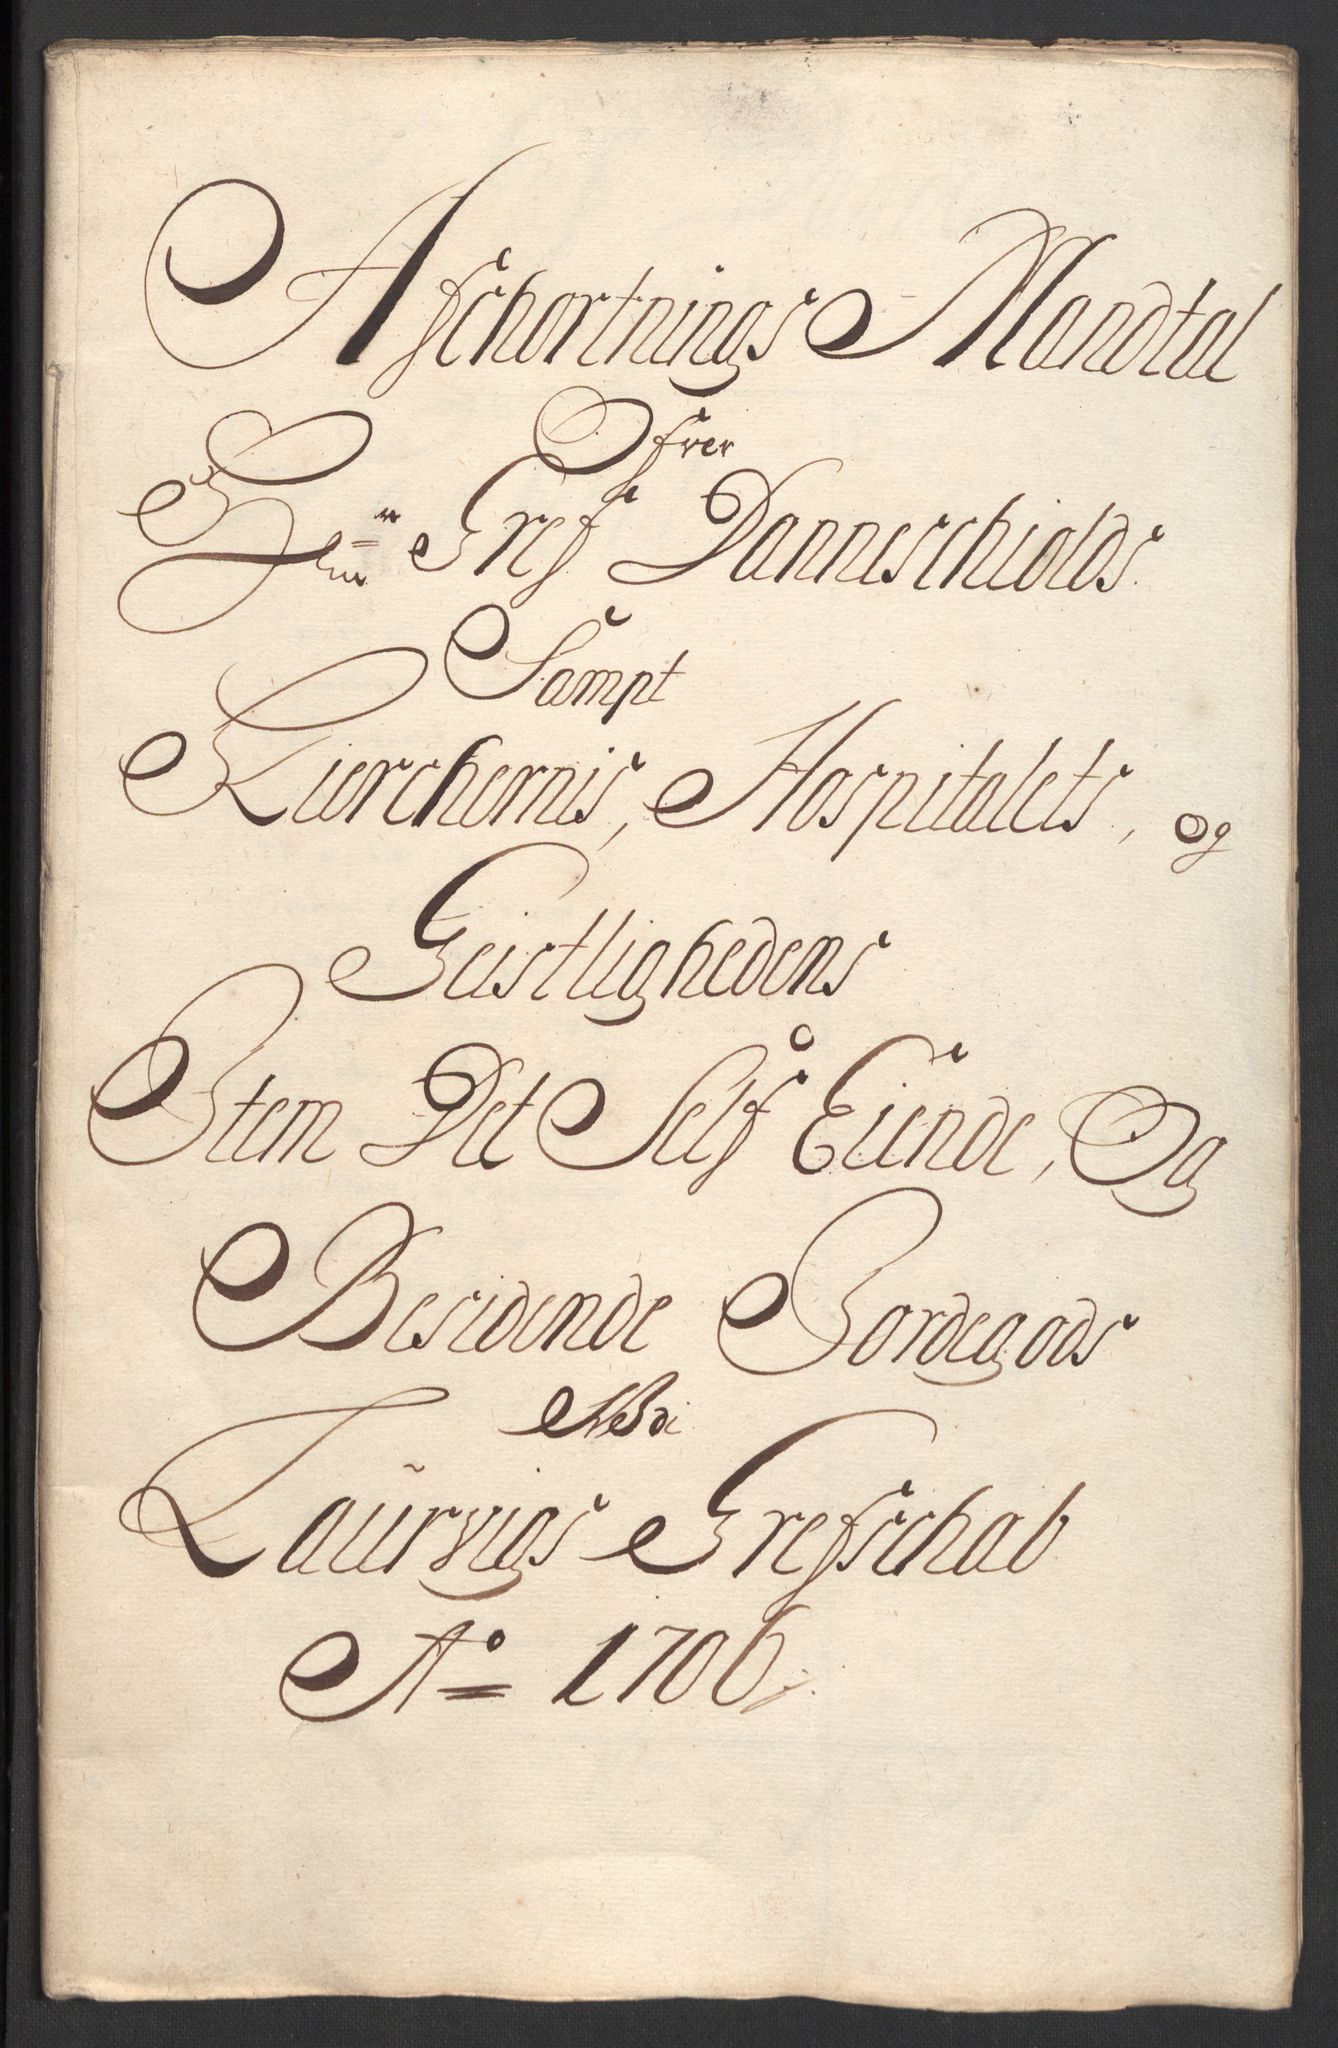 Afschortnings Mandtal
Ofver
Gref Danneschiolds
Sampt
Kierchernis, Hospitalets, og
Geistlighedens
Item Det Self Eiende, Og
Besidende Jordegods
Udi
Laürvigs Grefschab
Ao 1706